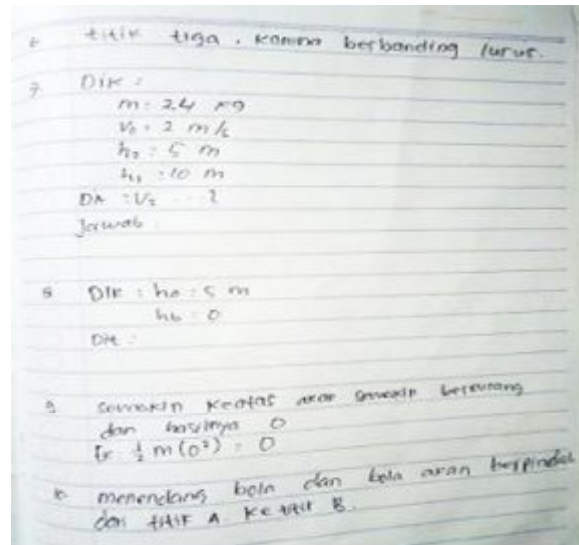 6 titik tiga, karena berbanding lurus.
7. Dik :
m = 24 kg
V₀ = 2 m/s
h₂ = 5 m
h₁ = 10 m
Dit : V₂ ... ?
Jawab :
8 Dik : ha = 5 m
hb = 0
Dit :
9 semakin keatas akan semakin berkurang
dan hasilnya 0
½ m (0²) = 0
10 menendang bola dan bola akan berpindah
dari titik A ke titik B.